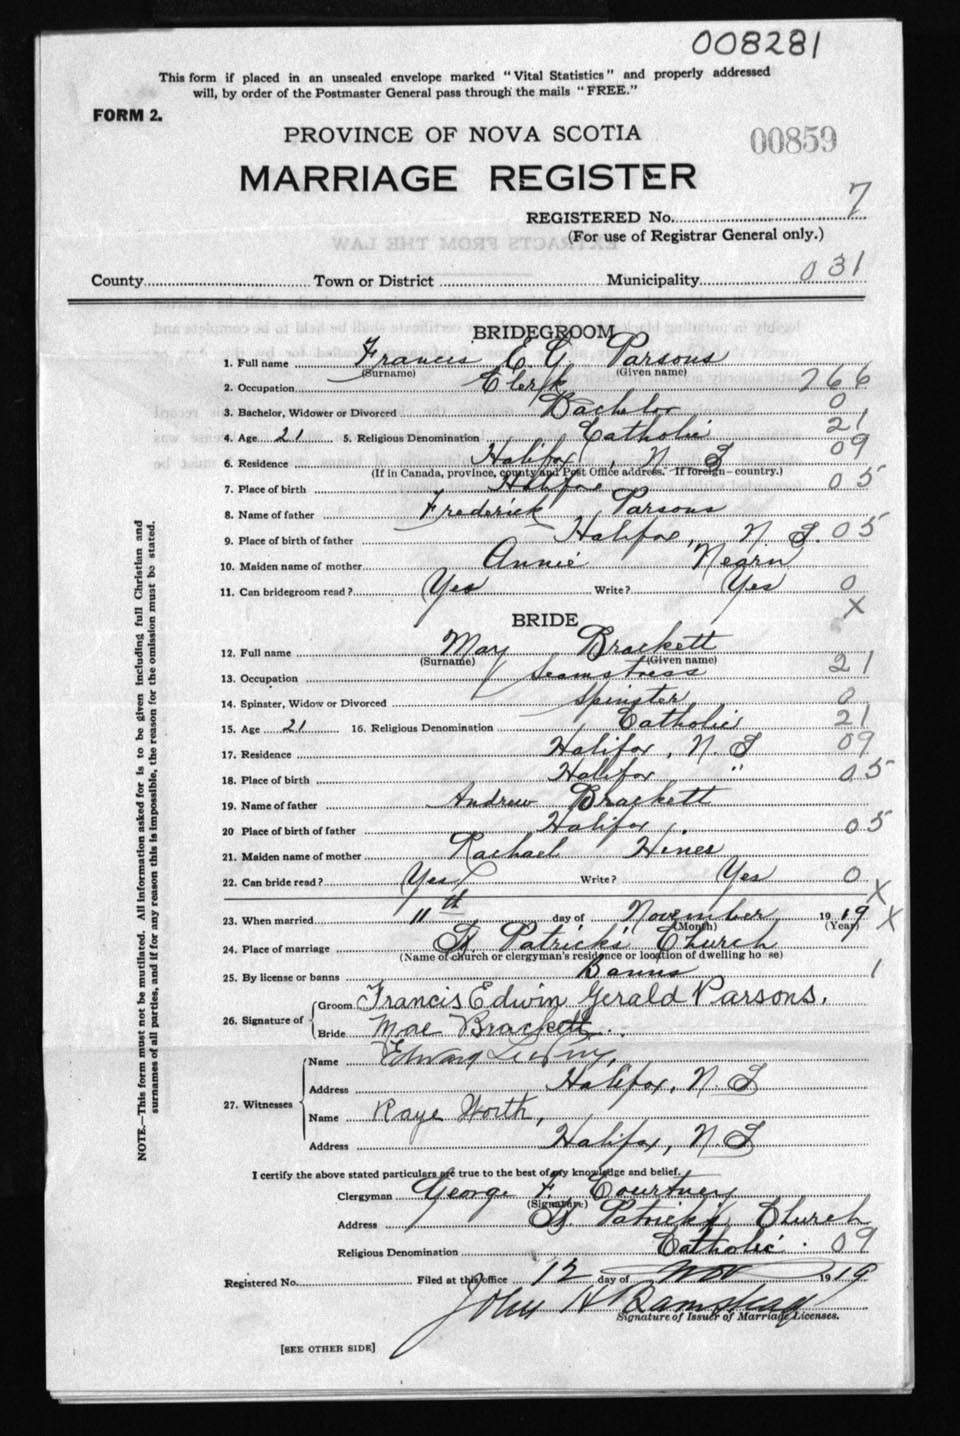 008281
This form if placed in an unsealed envelope marked "Vital Statistics" and properly addressed
will, by order of the Postmaster General pass through the mails "FREE."
FORM 2.
PROVINCE OF NOVA SCOTIA
00859
MARRIAGE REGISTER
REGISTERED No. 7
(For use of Registrar General only.)
County Town or District Municipality 031
BRIDEGROOM
1. Full name Francis E. G. Parsons
(Surname) (Given name)
2. Occupation Clerk 266
3. Bachelor, Widower or Divorced Bachelor 0
4. Age 21 5. Religious Denomination Catholic 21
6. Residence Halifax, N S 09
(If in Canada, province, county and Post Office address. If foreign—country.)
7. Place of birth Halifax 05
8. Name of father Frederick Parsons
9. Place of birth of father Halifax, N. S. 05
10. Maiden name of mother Annie
11. Can bridegroom read? Yes Write? Yes 0
X
BRIDE
12. Full name May Brackett
(Surname) (Given name)
13. Occupation Seamstress 21
14. Spinster, Widow or Divorced Spinster 0
15. Age 21 16. Religious Denomination Catholic 21
17. Residence Halifax, N. S 09
18. Place of birth Halifax " 05
19. Name of father Andrew Brackett
20 Place of birth of father Halifax 05
21. Maiden name of mother Rachael Hines
22. Can bride read? Yes Write? Yes 0
X
23. When married 11th day of November 1919 X
(Month) (Year)
24. Place of marriage St. Patricks' Church
(Name of church or clergyman's residence or location of dwelling house)
25. By license or banns Banns 1
26. Signature of
Groom Francis Edwin Gerald Parsons.
Bride Mae Brackett.
27. Witnesses
Name Edward
Address Halifax, N. S
Name Raye Worth,
Address Halifax, N. S
I certify the above stated particulars are true to the best of my knowledge and belief.
Clergyman George F. Courtney
(Signature)
Address St. Patricks Church
Religious Denomination Catholic. 09
Registered No. Filed at this office 12 day of Nov 1919
John H
Signature of Issuer of Marriage Licenses.
[SEE OTHER SIDE]
NOTE.—This form must not be mutilated. All information asked for is to be given including full Christian and
surnames of all parties, and if for any reason this is impossible, the reason for the omission must be stated.